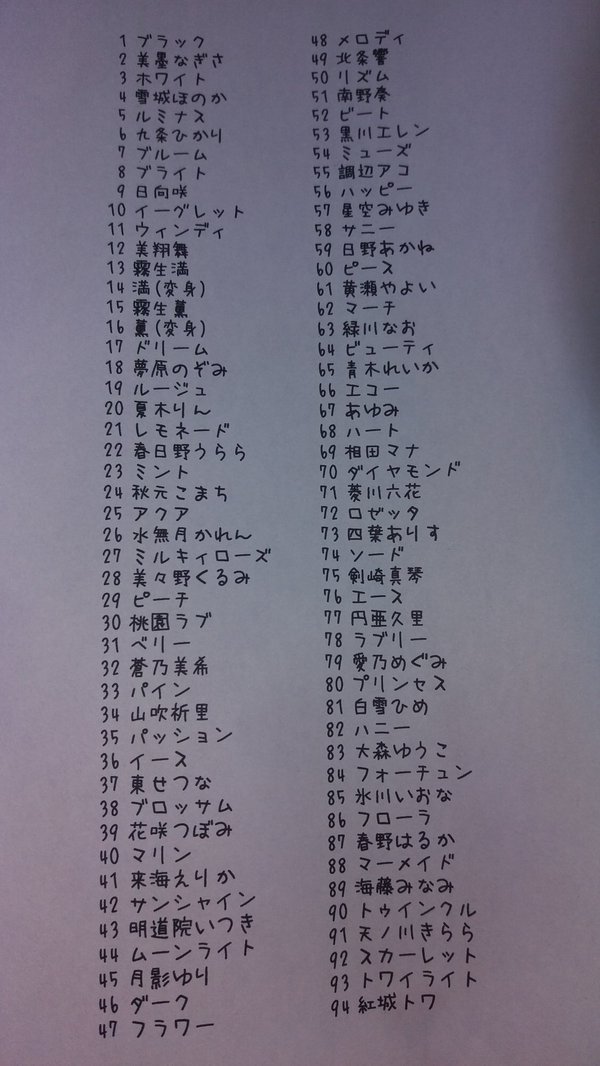 1 ブラック
2 美墨なぎさ
3 ホワイト
4 雪城ほのか
5 ルミナス
6 九条ひかり
7 ブルーム
8 ブライト
9 日向咲
10 イーグレット
11 ウィンディ
12 美翔舞
13 霧生満
14 満(変身)
15 霧生薫
16 薫(変身)
17 ドリーム
18 夢原のぞみ
19 ルージュ
20 夏木りん
21 レモネード
22 春日野うらら
23 ミント
24 秋元こまち
25 アクア
26 水無月かれん
27 ミルキィローズ
28 美々野くるみ
29 ピーチ
30 桃園ラブ
31 ベリー
32 蒼乃美希
33 パイン
34 山吹祈里
35 パッション
36 イース
37 東せつな
38 ブロッサム
39 花咲つぼみ
40 マリン
41 来海えりか
42 サンシャイン
43 明道院いつき
44 ムーンライト
45 月影ゆり
46 ダーク
47 フラワー
48 メロディ
49 北条響
50 リズム
51 南野奏
52 ビート
53 黒川エレン
54 ミューズ
55 調辺アコ
56 ハッピー
57 星空みゆき
58 サニー
59 日野あかね
60 ピース
61 黄瀬やよい
62 マーチ
63 緑川なお
64 ビューティ
65 青木れいか
66 エコー
67 あゆみ
68 ハート
69 相田マナ
70 ダイヤモンド
71 菱川六花
72 ロゼッタ
73 四葉ありす
74 ソード
75 剣崎真琴
76 エース
77 円亜久里
78 ラブリー
79 愛乃めぐみ
80 プリンセス
81 白雪ひめ
82 ハニー
83 大森ゆうこ
84 フォーチュン
85 氷川いおな
86 フローラ
87 春野はるか
88 マーメイド
89 海藤みなみ
90 トゥインクル
91 天ノ川きらら
92 スカーレット
93 トワイライト
94 紅城トワ